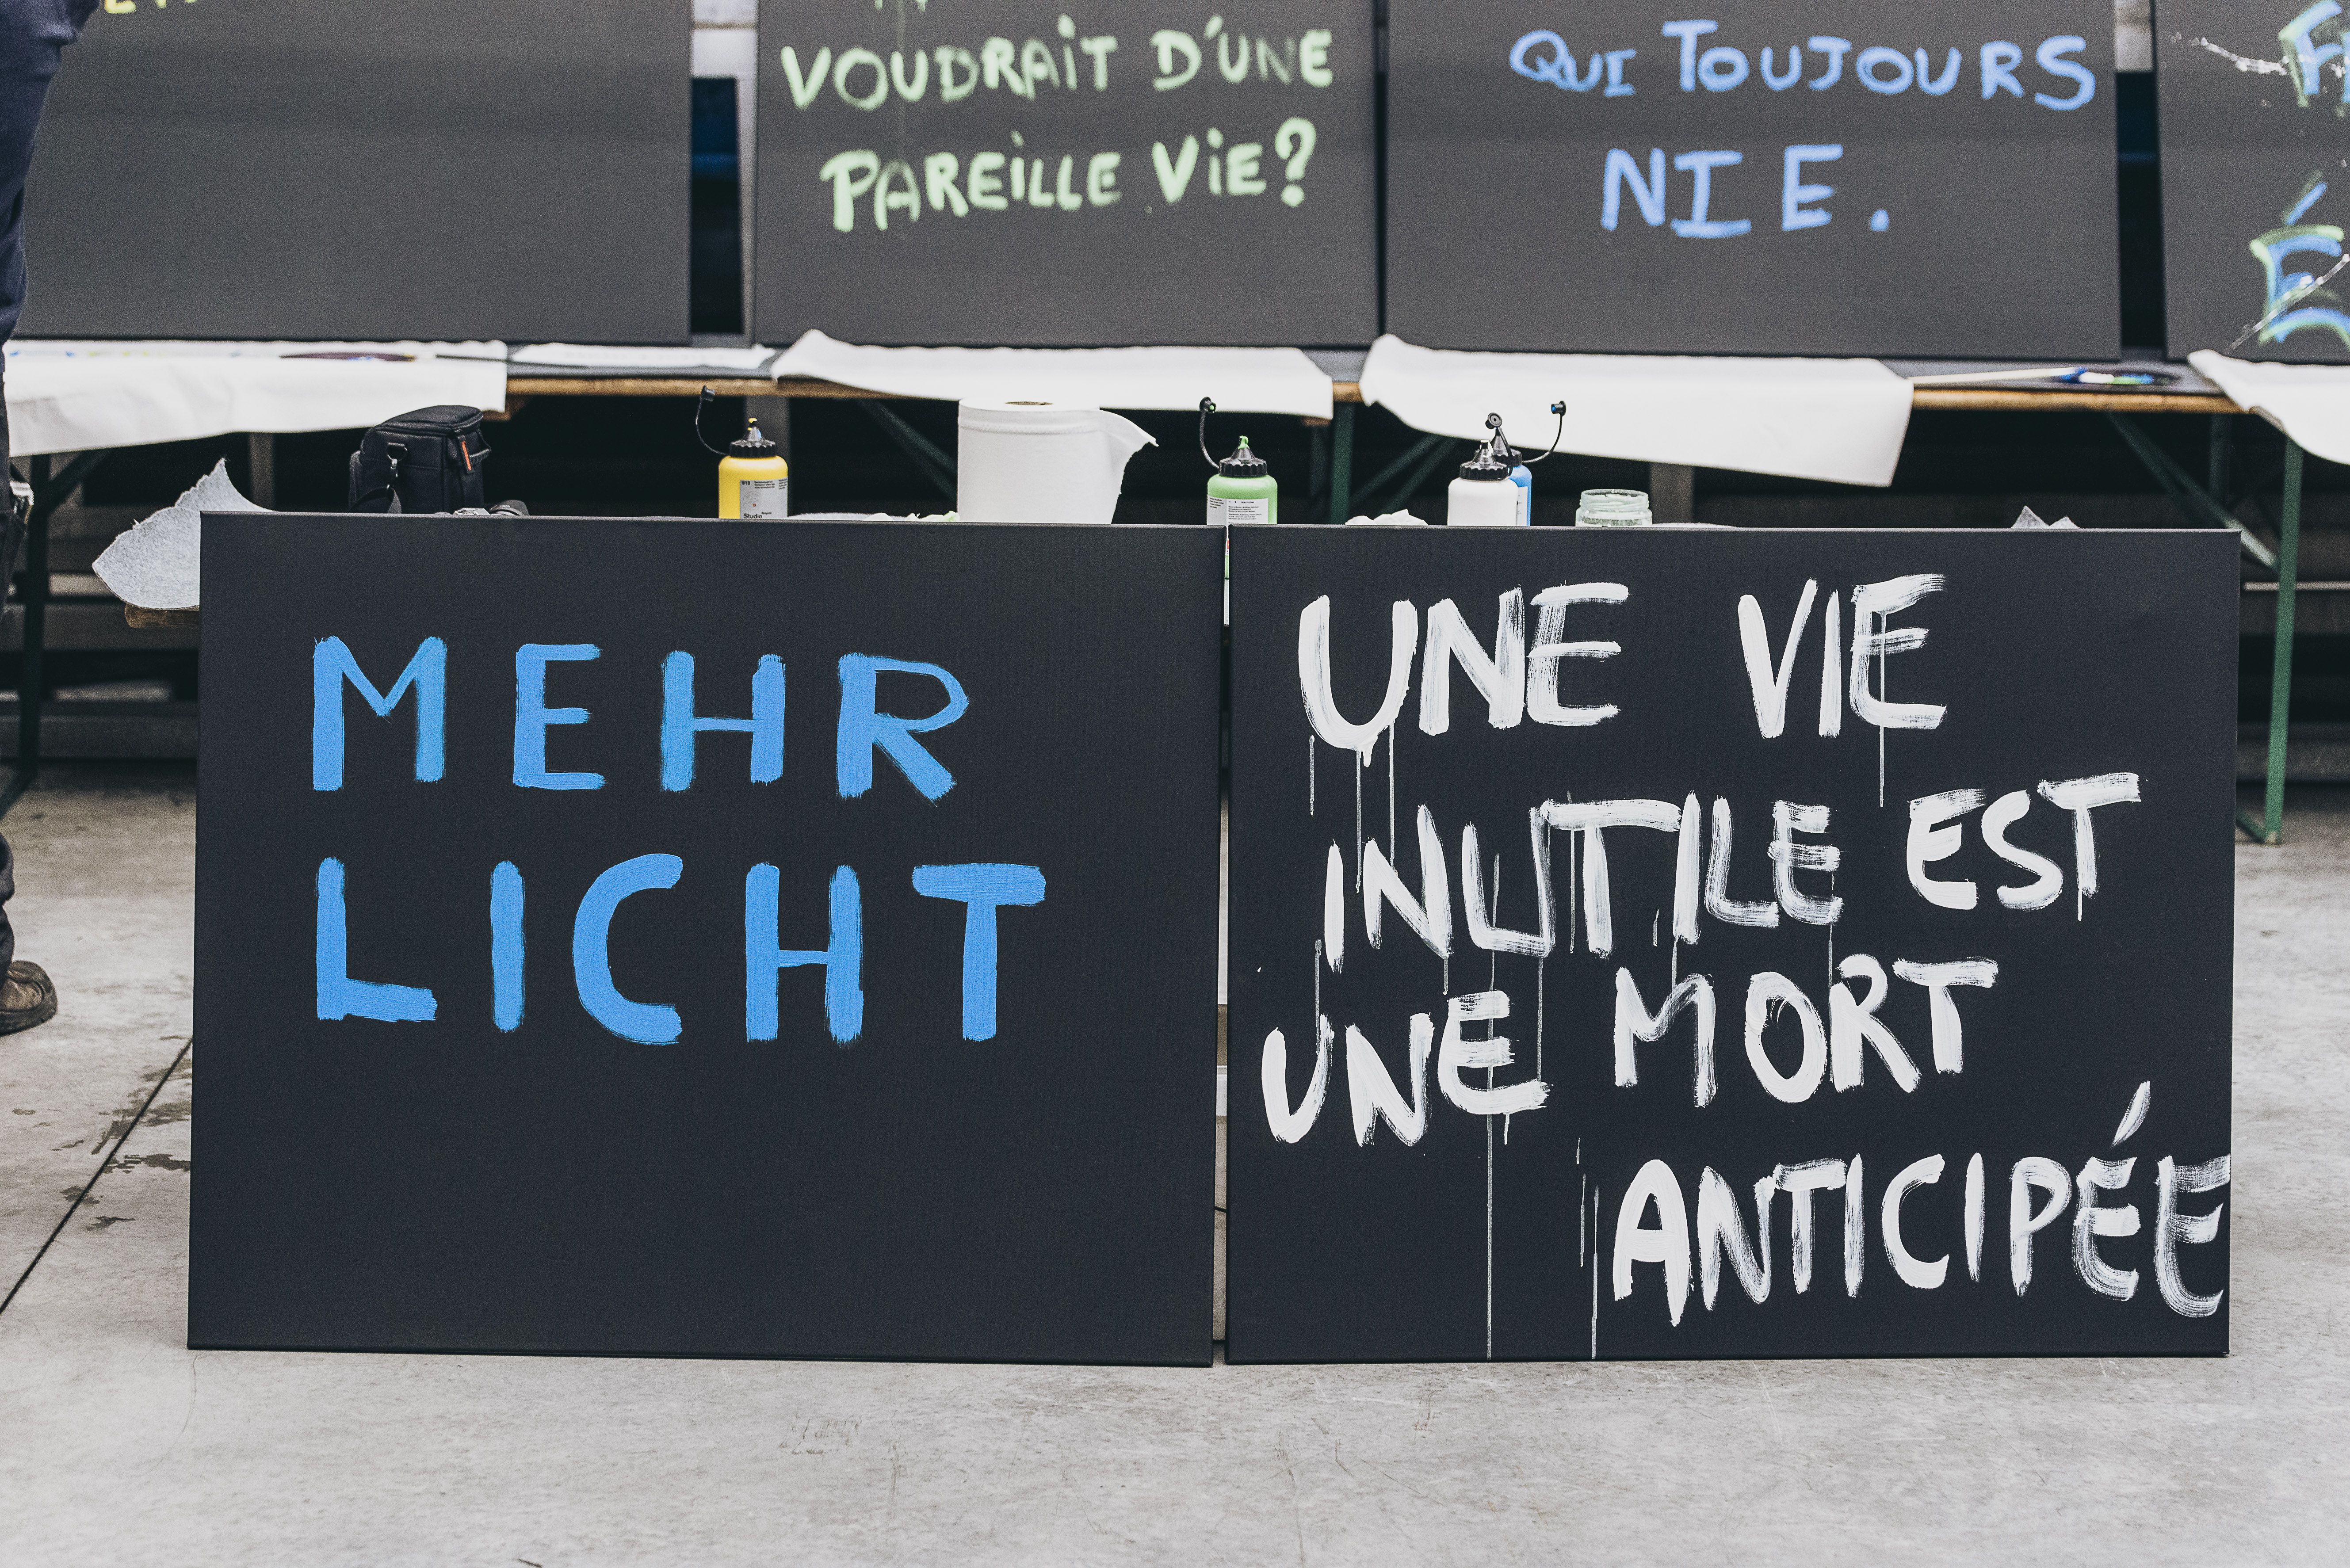 VOUDRAIT D'UNE
PAREILLE VIE?
QUI TOUJOURS
NIE.
MEHR
LICHT
UNE VIE
INUTILE EST
UNE MORT
ANTICIPÉE